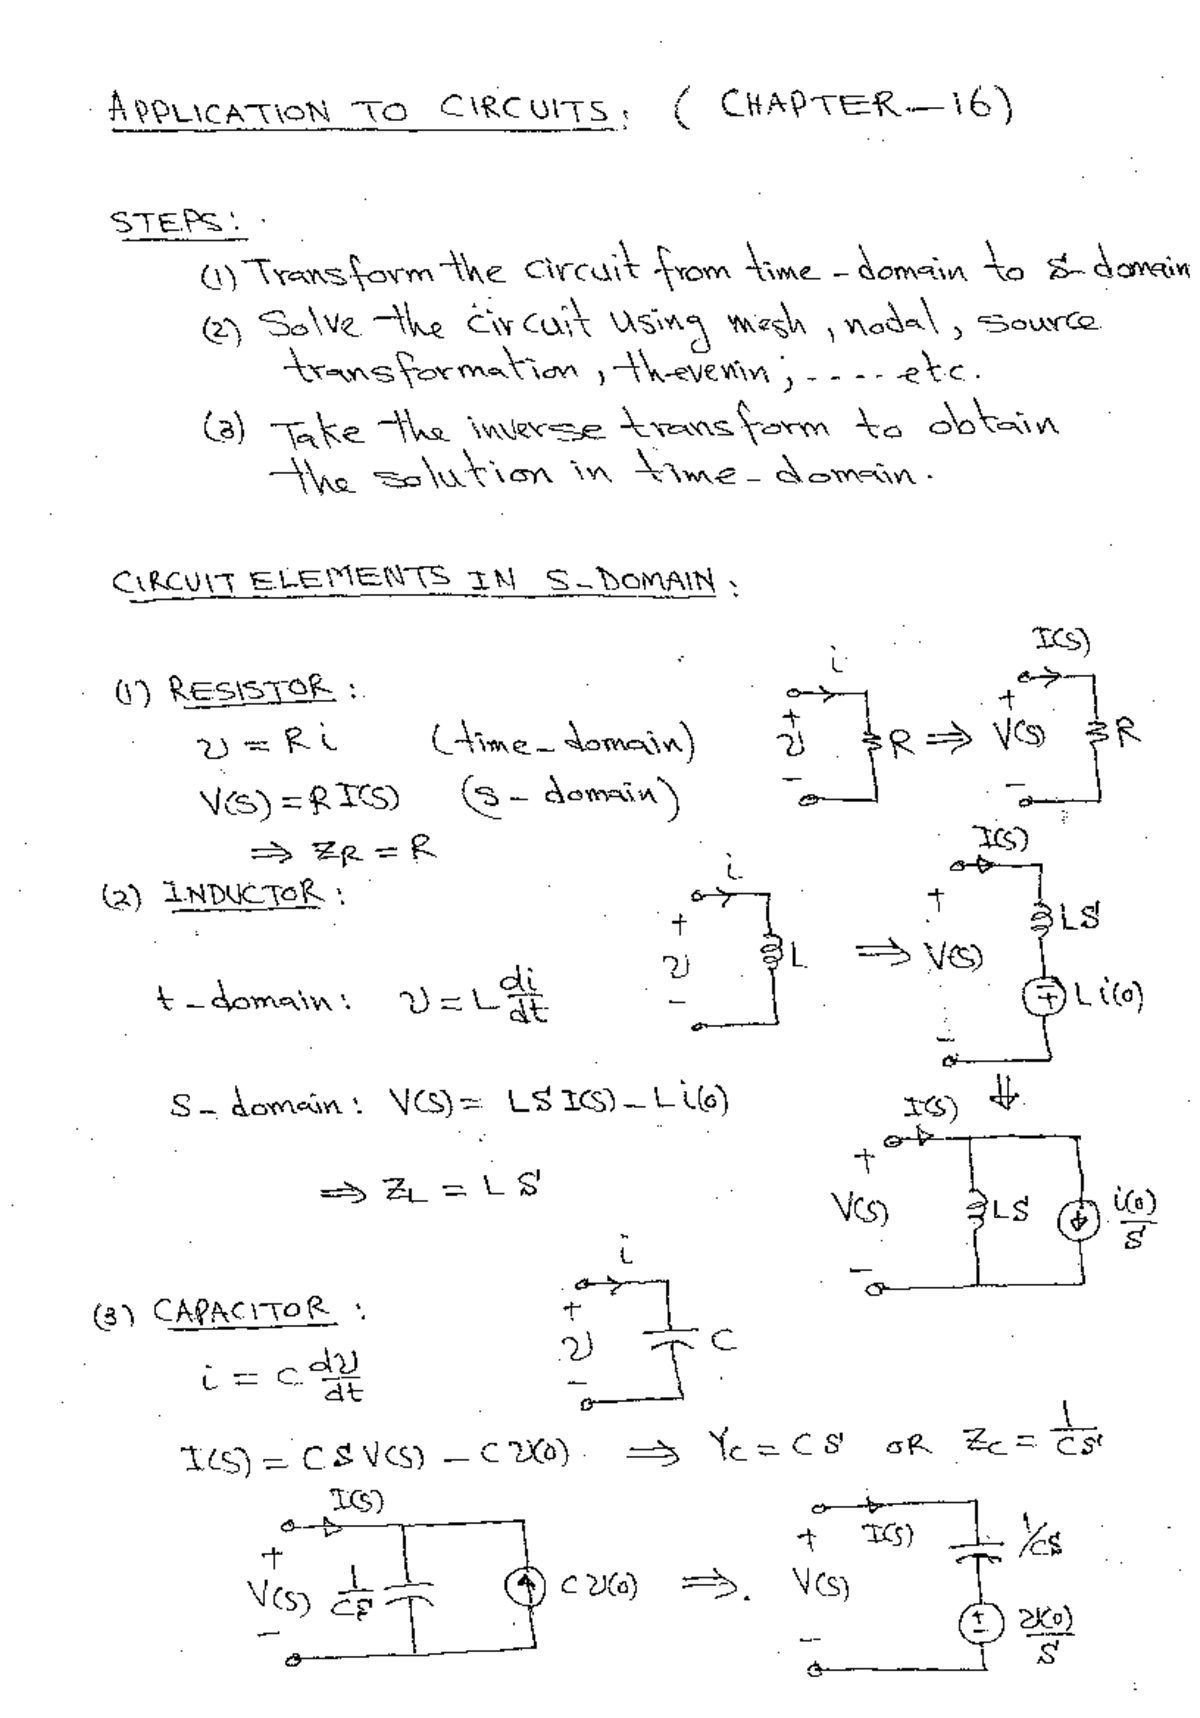 APPLICATION TO CIRCUITS: ( CHAPTER-16)
STEPS:
(1) Transform the circuit from time-domain to s-domain
(2) Solve the circuit using mesh, nodal, source
transformation, thevenin, ..... etc.
(3) Take the inverse transform to obtain
the solution in time-domain.
CIRCUIT ELEMENTS IN S-DOMAIN:
(1) RESISTOR:
v = Ri (time-domain)
V(S) = R I(S) (s-domain)
⇒ ZR = R
i
+
v
-
R
⇒
I(S)
+
V(S)
-
R
(2) INDUCTOR:
t-domain: v = L di/dt
S-domain: V(S) = LS I(S) - Li(0)
⇒ ZL = LS
i
+
v
-
L
⇒
I(S)
+
V(S)
-
LS
Li(0)
⇓
I(S)
+
V(S)
-
LS
i(0)/S
(3) CAPACITOR:
i = C dv/dt
i
+
v
-
C
I(S) = CS V(S) - C v(0) ⇒ YC = CS OR ZC = 1/CS
I(S)
+
V(S)
-
1/CS
C v(0)
⇒
I(S)
+
V(S)
-
1/CS
v(0)/S